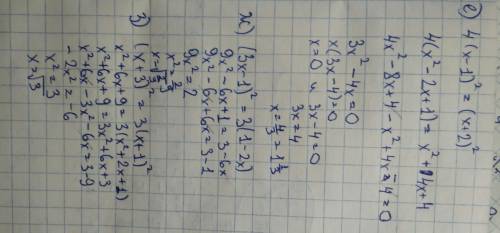 е) 4(x-1)² = (x+2)²
4(x²-2x+1) = x²+4x+4
4x²-8x+4-x²+4x-4=0
3x²-4x=0
x(3x-4)=0
x=0 и 3x-4=0
3x=4
x=4/3=1 1/3
ж) (3x-1)²=3(1-2x)
9x²-6x+1=3-6x
9x²-6x+6x=3-1
9x²=2
x²=2/9
x=√2/9
з) (x+3)²=3(x+1)²
x²+6x+9=3(x²+2x+1)
x²+6x+9=3x²+6x+3
x²+6x-3x²-6x=3-9
-2x²=-6
x²=3
x=√3